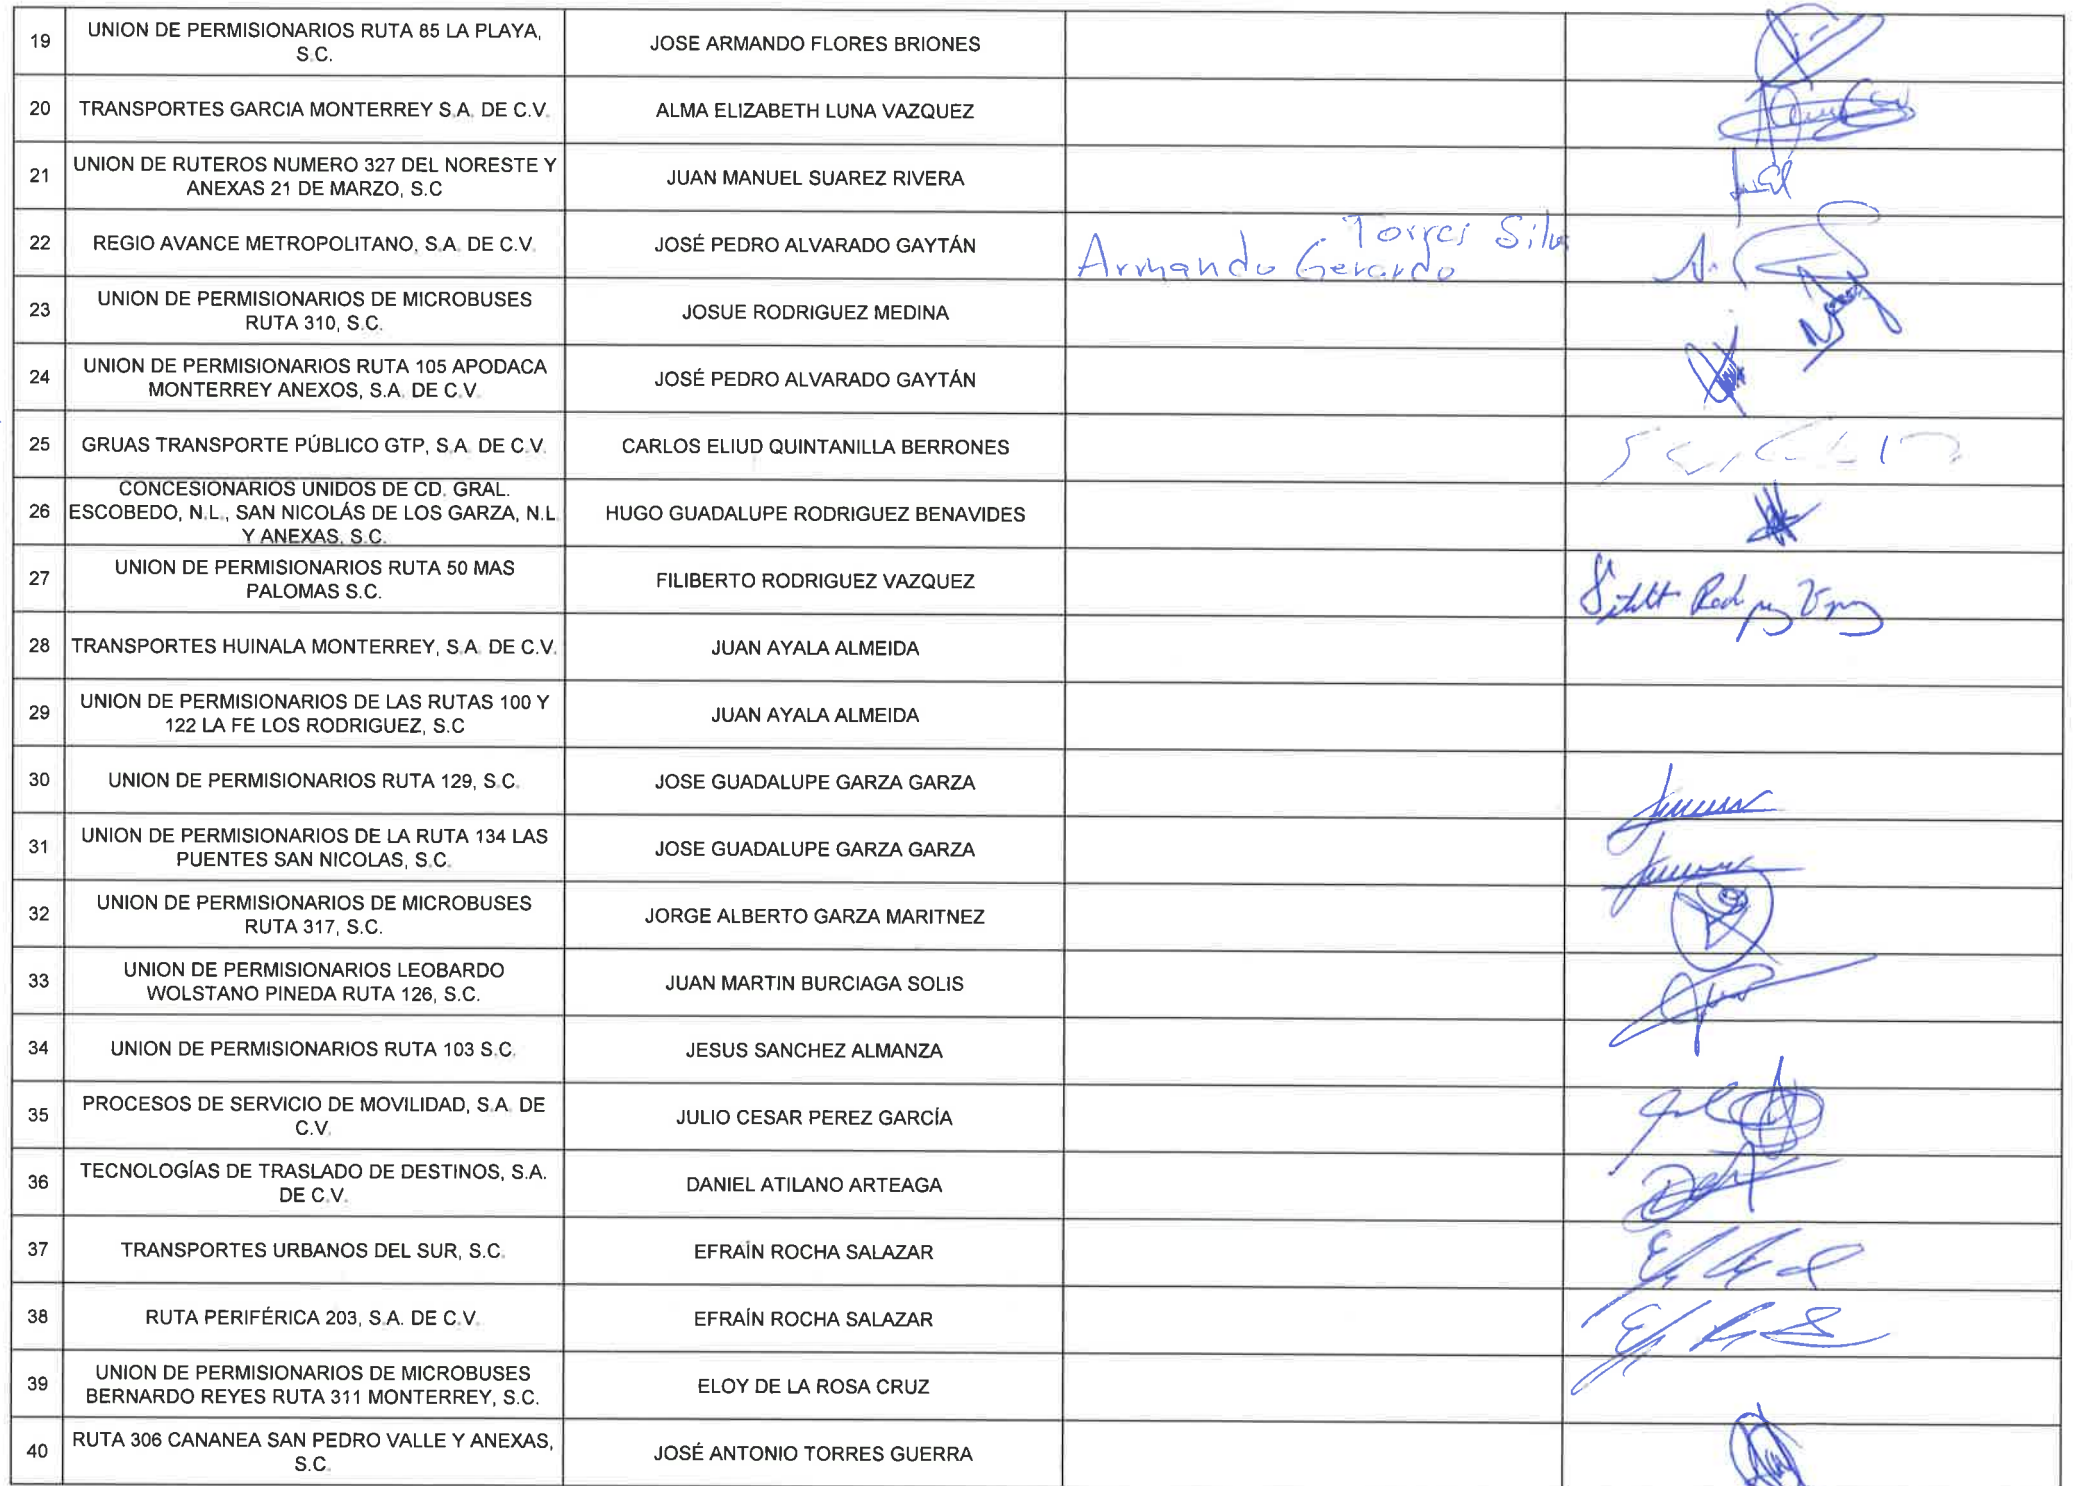 19 UNION DE PERMISIONARIOS RUTA 85 LA PLAYA,
S.C. JOSE ARMANDO FLORES BRIONES
20 TRANSPORTES GARCIA MONTERREY S.A. DE C.V. ALMA ELIZABETH LUNA VAZQUEZ
21 UNION DE RUTEROS NUMERO 327 DEL NORESTE Y
ANEXAS 21 DE MARZO, S.C JUAN MANUEL SUAREZ RIVERA
22 REGIO AVANCE METROPOLITANO, S.A. DE C.V. JOSÉ PEDRO ALVARADO GAYTÁN
Torres Silva
Armando Gerardo
23 UNION DE PERMISIONARIOS DE MICROBUSES
RUTA 310, S.C. JOSUE RODRIGUEZ MEDINA
24 UNION DE PERMISIONARIOS RUTA 105 APODACA
MONTERREY ANEXOS, S.A. DE C.V. JOSÉ PEDRO ALVARADO GAYTÁN
25 GRUAS TRANSPORTE PÚBLICO GTP, S.A. DE C.V. CARLOS ELIUD QUINTANILLA BERRONES
26 CONCESIONARIOS UNIDOS DE CD. GRAL.
ESCOBEDO, N.L., SAN NICOLÁS DE LOS GARZA, N.L.
Y ANEXAS, S.C. HUGO GUADALUPE RODRIGUEZ BENAVIDES
27 UNION DE PERMISIONARIOS RUTA 50 MAS
PALOMAS S.C. FILIBERTO RODRIGUEZ VAZQUEZ
28 TRANSPORTES HUINALA MONTERREY, S.A. DE C.V. JUAN AYALA ALMEIDA
29 UNION DE PERMISIONARIOS DE LAS RUTAS 100 Y
122 LA FE LOS RODRIGUEZ, S.C JUAN AYALA ALMEIDA
30 UNION DE PERMISIONARIOS RUTA 129, S.C. JOSE GUADALUPE GARZA GARZA
31 UNION DE PERMISIONARIOS DE LA RUTA 134 LAS
PUENTES SAN NICOLAS, S.C. JOSE GUADALUPE GARZA GARZA
32 UNION DE PERMISIONARIOS DE MICROBUSES
RUTA 317, S.C. JORGE ALBERTO GARZA MARITNEZ
33 UNION DE PERMISIONARIOS LEOBARDO
WOLSTANO PINEDA RUTA 126, S.C. JUAN MARTIN BURCIAGA SOLIS
34 UNION DE PERMISIONARIOS RUTA 103 S.C. JESUS SANCHEZ ALMANZA
35 PROCESOS DE SERVICIO DE MOVILIDAD, S.A. DE
C.V. JULIO CESAR PEREZ GARCÍA
36 TECNOLOGÍAS DE TRASLADO DE DESTINOS, S.A.
DE C.V. DANIEL ATILANO ARTEAGA
37 TRANSPORTES URBANOS DEL SUR, S.C. EFRAÍN ROCHA SALAZAR
38 RUTA PERIFÉRICA 203, S.A. DE C.V. EFRAÍN ROCHA SALAZAR
39 UNION DE PERMISIONARIOS DE MICROBUSES
BERNARDO REYES RUTA 311 MONTERREY, S.C. ELOY DE LA ROSA CRUZ
40 RUTA 306 CANANEA SAN PEDRO VALLE Y ANEXAS,
S.C. JOSÉ ANTONIO TORRES GUERRA